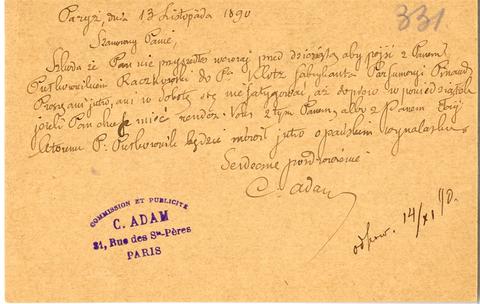 Paryż, dnia 13 Listopada 1890
331
Szanowny Panie,
Szkoda że Pan nie przyszedłeś wczoraj przed dziesiątą aby pójść z Panem
Raczkowski do Pa Klotz fabrykanta Parfumerji Pinaud
Proszę ani jutro, ani w Sobotę się nie fatygować, aż dopiero w poniedziałek
jeżeli Pan chce mieć rendez-vous z tym Panem, albo z Panem
któremu P. będzie mówił jutro o pańskim wynalazku
Serdeczne pozdrowienie
C. Adam
COMMISSION ET PUBLICITÉ
C. ADAM
31, Rue des Sts-Pères
PARIS
odpow. 14/XI 90.